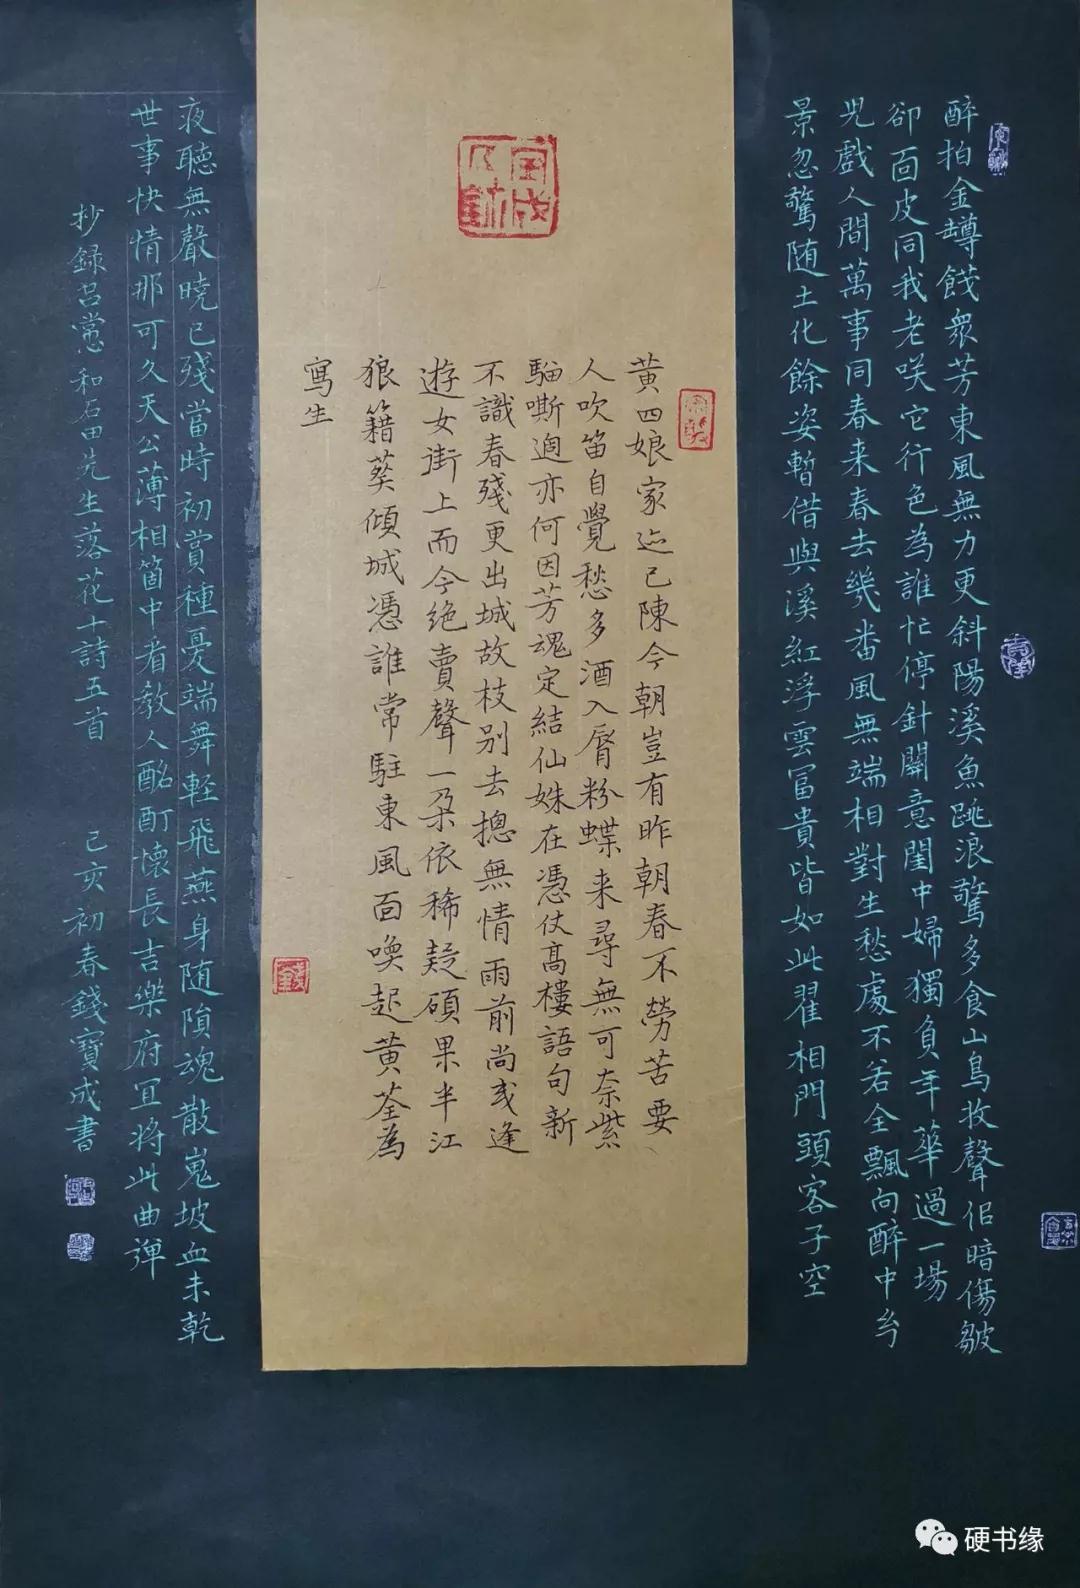 醉拍金罇餞衆芳東風無力更斜陽溪魚跳浪驚多食山鳥收聲佀暗傷皺
卻面皮同我老咲它行色為誰忙停針關意閨中婦獨負年華過一場
兒戲人間萬事同春来春去幾番風無端相對生愁處不若全飄向醉中兮
景忽驚随土化餘姿暫借與溪紅浮雲冨貴皆如此翟相門頭客子空
黄四娘家迹已陳今朝豈有昨朝春不勞苦要
人吹笛自覺愁多酒入脣粉蝶来尋無可奈紫
騮嘶過亦何因芳魂定結仙姝在憑仗髙樓語句新
不識春殘更出城故枝别去摠無情雨前尚或逢
遊女街上而今绝賣聲一朵依稀疑碩果半江
狼籍葵傾城憑誰常駐東風面喚起黄荃為
寫生
夜聽無聲曉已殘當時初賞種憂端舞軽飛燕身随隕魂散嵬坡血未乾
世事快情那可久天公薄相箇中看教人酩酊懐長吉樂府冝将此曲弾
抄録吕㦂和石田先生落花十詩五首 己亥初春錢寶成書
硬书缘